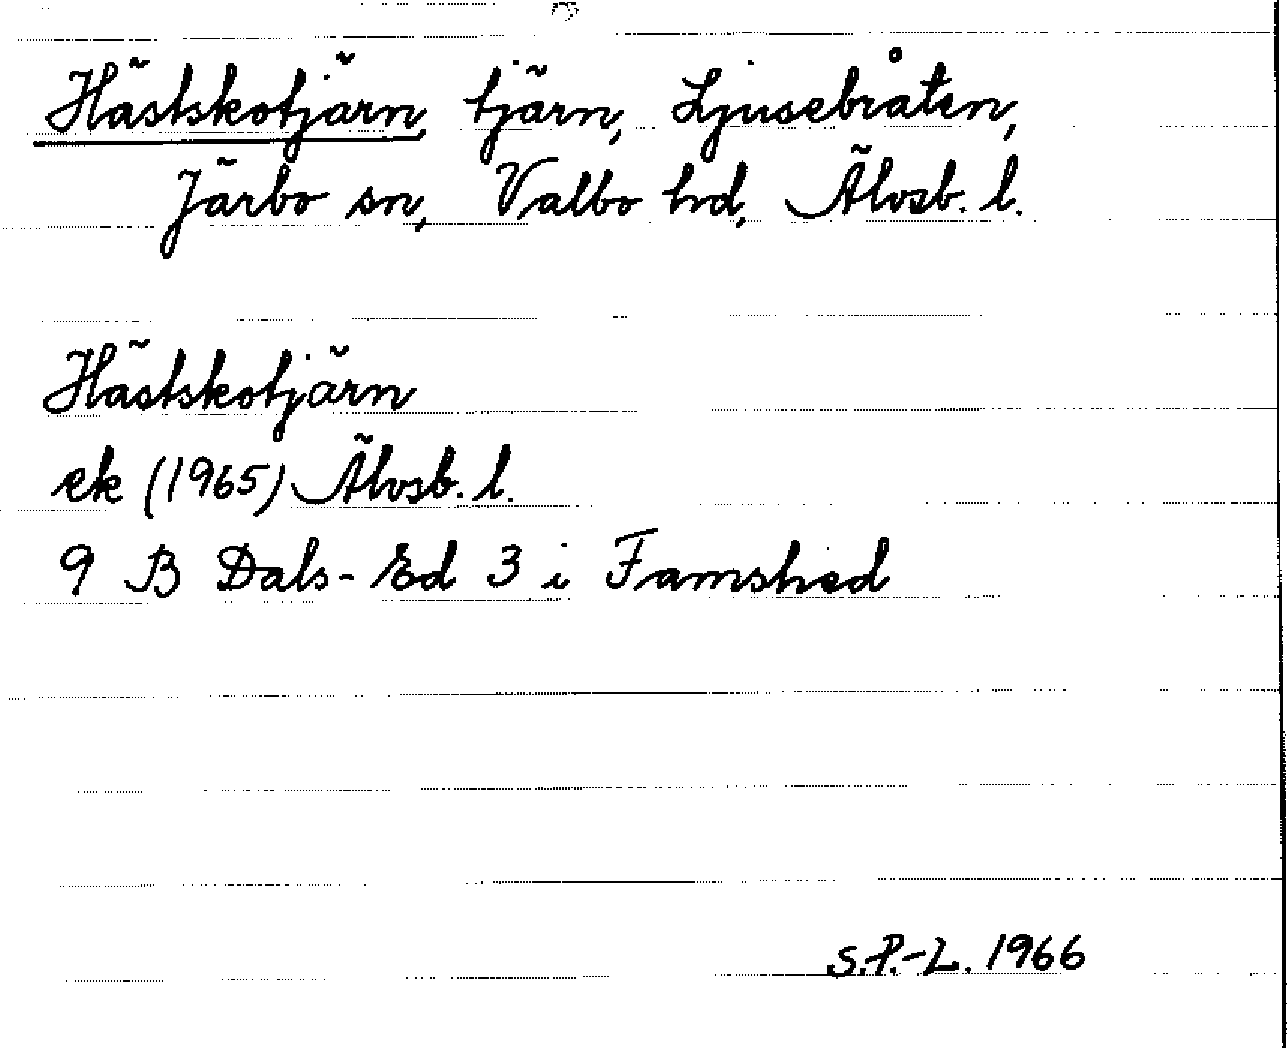 Hästskotjärn, tjärn, Ljusebråten,
Järbo sn, Valbo hd, Älvsb. l.
Hästskotjärn
ek (1965) Älvsb. l.
9 B Dals-Ed 3 i Famshed
S.P.-L. 1966